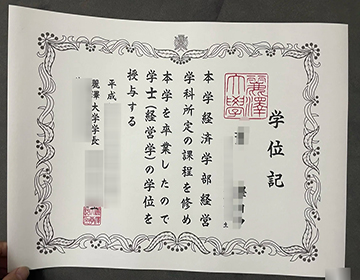 学位記
麗澤大學
生
本学経済学部経営
学科所定の課程を修め
本学を卒業したので
学士(経営学)の学位を
授与する
平成
麗澤大学学長